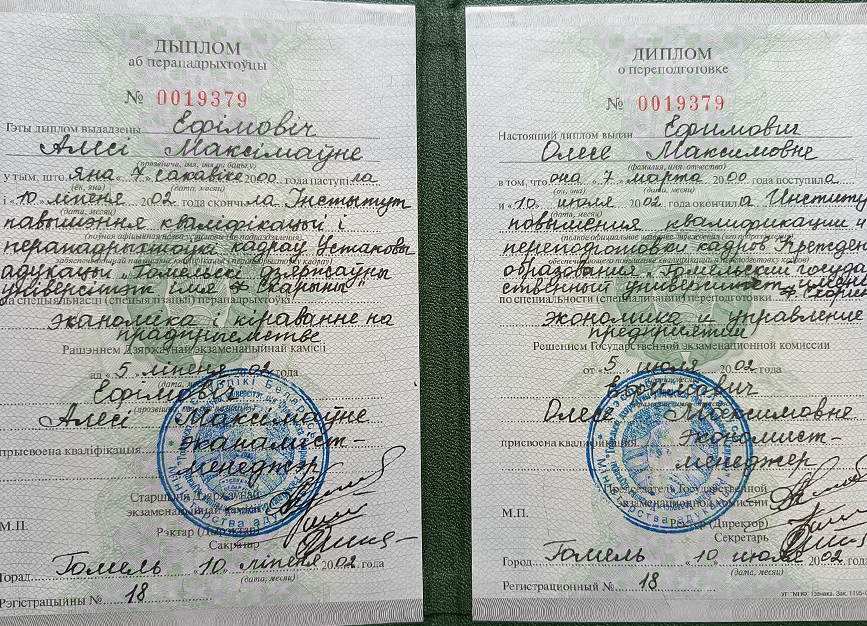 ДЫПЛОМ
аб перападрыхтоўцы
№ 0019379
Гэты дыплом выдадзены Ефімовіч
Алесі Максімаўне
(прозвішча, імя, імя па бацьку)
у тым, што яна 7 сакавіка 2000 года паступіла
(ён, яна) (дата, месяц)
і 10 ліпеня 2002 года скончыла Інстытут
(дата, месяц)
павышэння кваліфікацыі і
перападрыхтоўкі кадраў Установы
адукацыі "Гомельскі дзяржаўны
універсітэт імя Ф. Скарыны"
па спецыяльнасці (спецыялізацыі) перападрыхтоўкі
эканоміка і кіраванне на
прадпрыемстве
Рашэннем Дзяржаўнай экзаменацыйнай камісіі
ад 5 ліпеня 2002 года
(дата, месяц)
Ефімовіч
Алесі Максімаўне
прысвоена кваліфікацыя эканаміст-
менеджэр
Старшыня Дзяржаўнай
экзаменацыйнай камісіі
М.П.
Рэктар (Дырэктар)
Сакратар
Горад Гомель 10 ліпеня 2002 года
(дата, месяц)
Рэгістрацыйны № 18
ДИПЛОМ
о переподготовке
№ 0019379
Настоящий диплом выдан Ефимович
Олесе Максимовне
(фамилия, имя, отчество)
в том, что она 7 марта 2000 года поступила
(он, она) (дата, месяц)
и 10 июля 2002 года окончила Институт
(дата, месяц)
повышения квалификации и
переподготовки кадров Учреждения
образования "Гомельский государ
ственный университет имени
Ф. Скорины
по специальности (специализации) переподготовки
экономика и управление
предприятием
Решением Государственной экзаменационной комиссии
от 5 июля 2002 года
Ефимович
Олесе Максимовне
присвоена квалификация экономист-
менеджер
Председатель Государственной
экзаменационной комиссии
М.П.
Ректор (Директор)
Секретарь
Город Гомель 10 июля 2002 года
(дата, месяц)
Регистрационный № 18